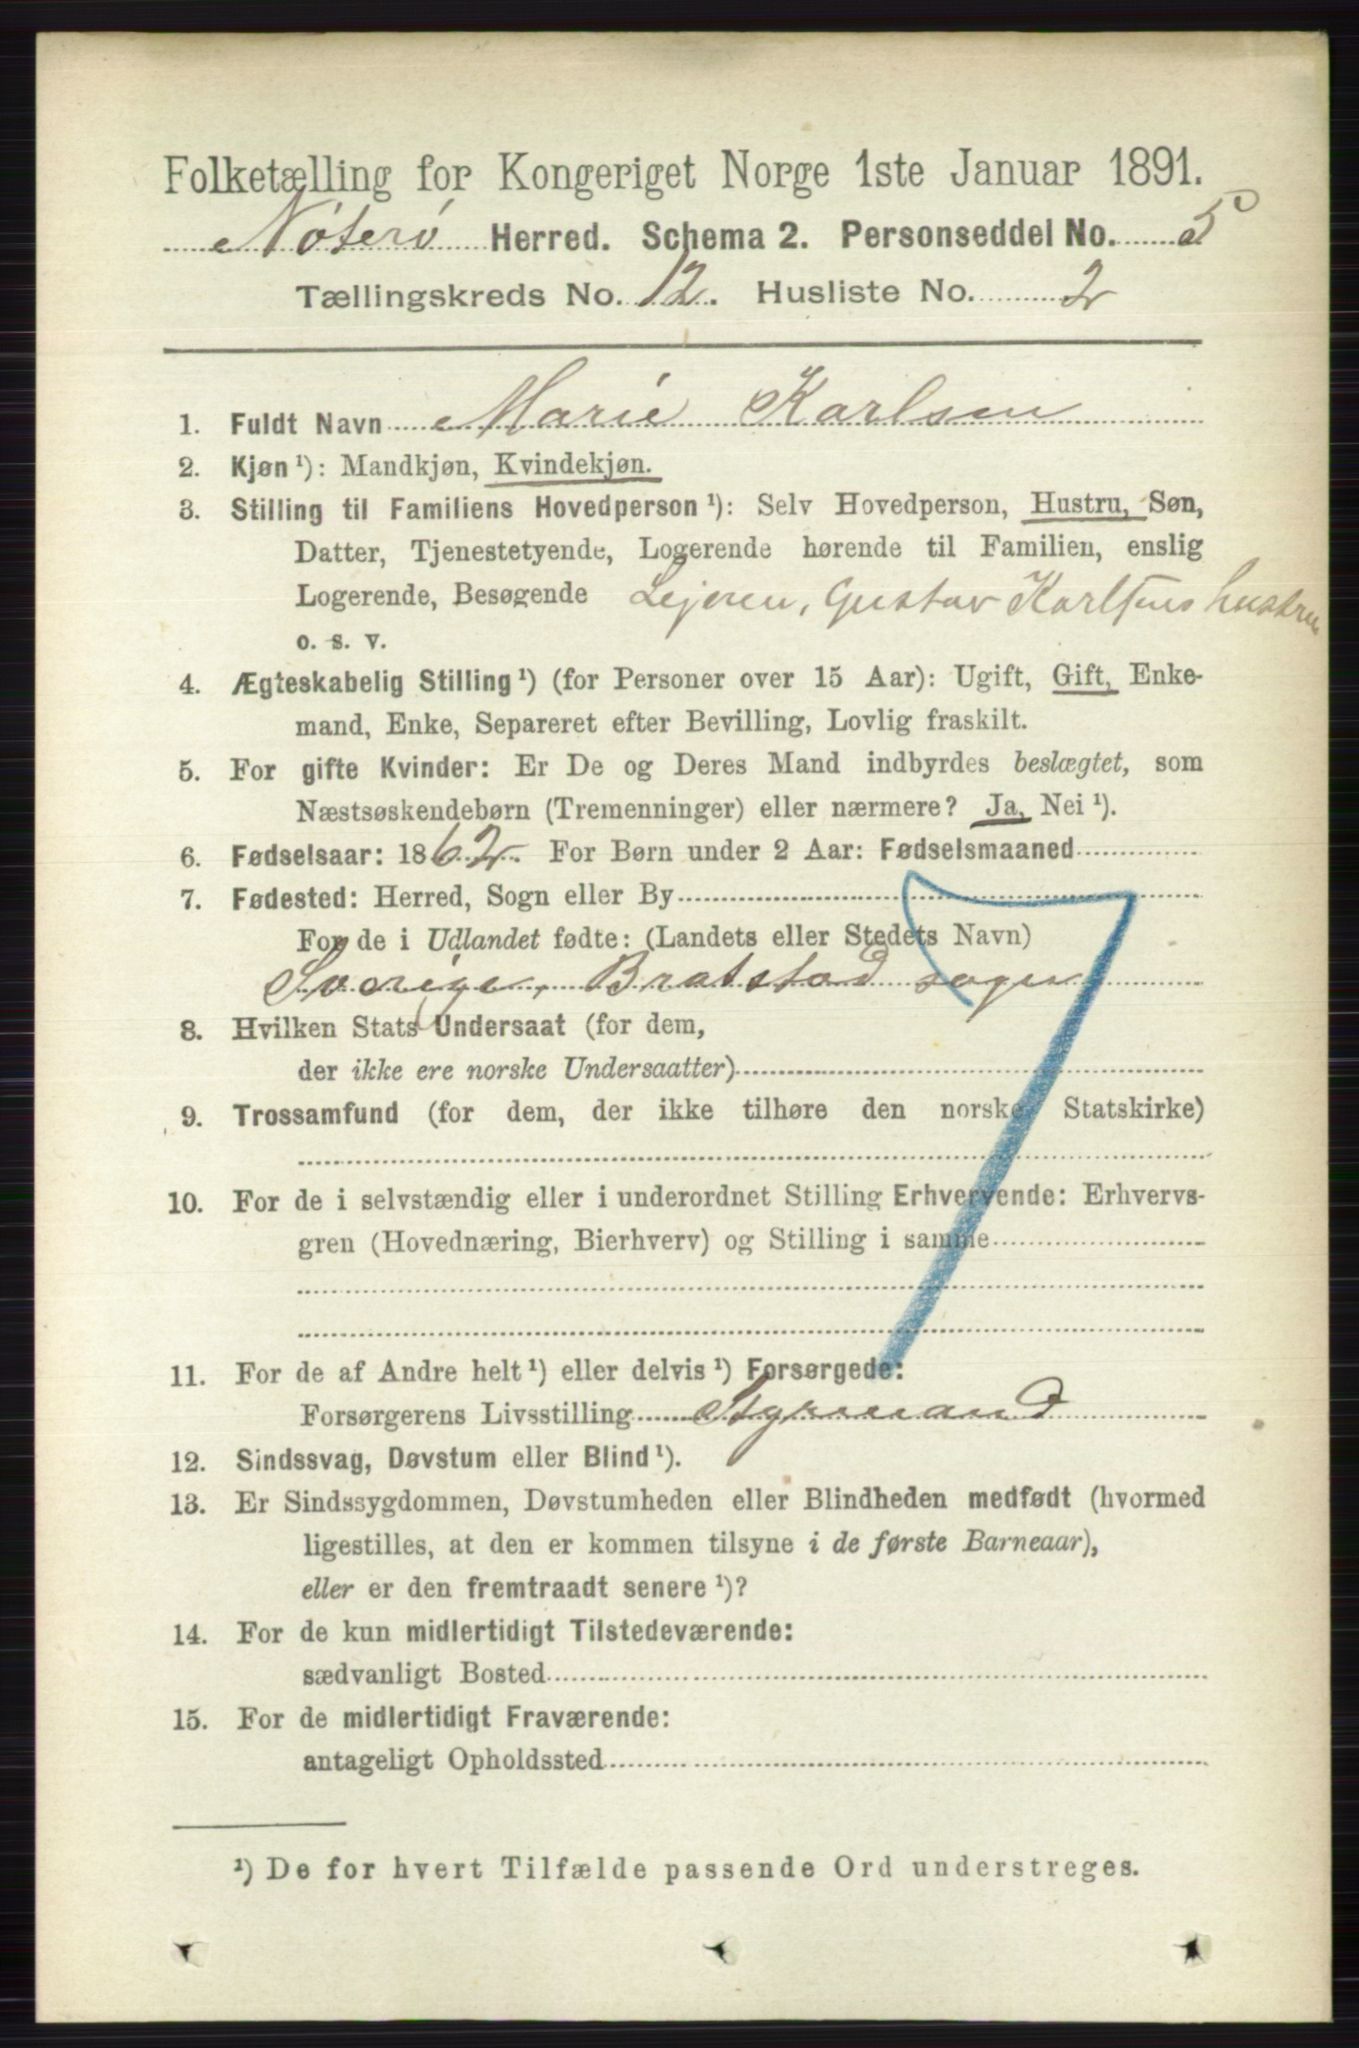 Folketælling for Kongeriget Norge 1ste Januar 1891.
Nøterø Herred. Schema 2. Personseddel No. 5
Tællingskreds No. 12. Husliste No. 2
1. Fuldt Navn Marie Karlsen
2. Kjøn ¹): Mandkjøn, Kvindekjøn.
3. Stilling til Familiens Hovedperson ¹): Selv Hovedperson, Hustru, Søn,
Datter, Tjenestetyende, Logerende hørende til Familien, enslig
Logerende, Besøgende Lejeren, Gustav Karlsens hustru
o. s. v.
4. Ægteskabelig Stilling ¹) (for Personer over 15 Aar): Ugift, Gift, Enke-
mand, Enke, Separeret efter Bevilling, Lovlig fraskilt.
5. For gifte Kvinder: Er De og Deres Mand indbyrdes beslægtet, som
Næstsøskendebørn (Tremenninger) eller nærmere? Ja, Nei ¹).
6. Fødselsaar: 1862. For Børn under 2 Aar: Fødselsmaaned
7. Fødested: Herred, Sogn eller By
For de i Udlandet fødte: (Landets eller Stedets Navn)
Sverige, Bratstad sogn
8. Hvilken Stats Undersaat (for dem,
der ikke ere norske Undersaatter)
9. Trossamfund (for dem, der ikke tilhøre den norske Statskirke)
10. For de i selvstændig eller i underordnet Stilling Erhvervende: Erhvervs-
gren (Hovednæring, Bierhverv) og Stilling i samme
7
11. For de af Andre helt ¹) eller delvis ¹) Forsørgede:
Forsørgerens Livsstilling Styrmand
12. Sindssvag, Døvstum eller Blind ¹).
13. Er Sindssygdommen, Døvstumheden eller Blindheden medfødt (hvormed
ligestilles, at den er kommen tilsyne i de første Barneaar),
eller er den fremtraadt senere ¹)?
14. For de kun midlertidigt Tilstedeværende:
sædvanligt Bosted
15. For de midlertidigt Fraværende:
antageligt Opholdssted
¹) De for hvert Tilfælde passende Ord understreges.